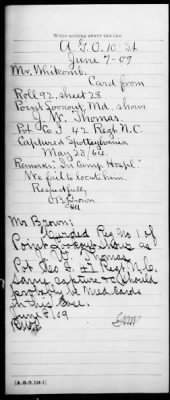 Write nothing above this line.
A.G.O. 10 St
June 7-09
Mr. Whitcomb.
Card from
Roll 92, sheet 28
Point Lookout Md. shows
J. W. Thomas.
Pvt Co. I 42 Regt N.C.
Captured Spottsylvania
May 23/64
Remarks: In Camp Hospl."
We fail to locate him.
Respectfully
Brown
Mr Brown:
Carded Reg No 1 of
Point Lookout shows as
Thomas
Pvt Geo I. 47 Regt, N.C.
Same capture & should
probably be Med cards
in this Case.
June 8/09
[A. G. O. 124-1]